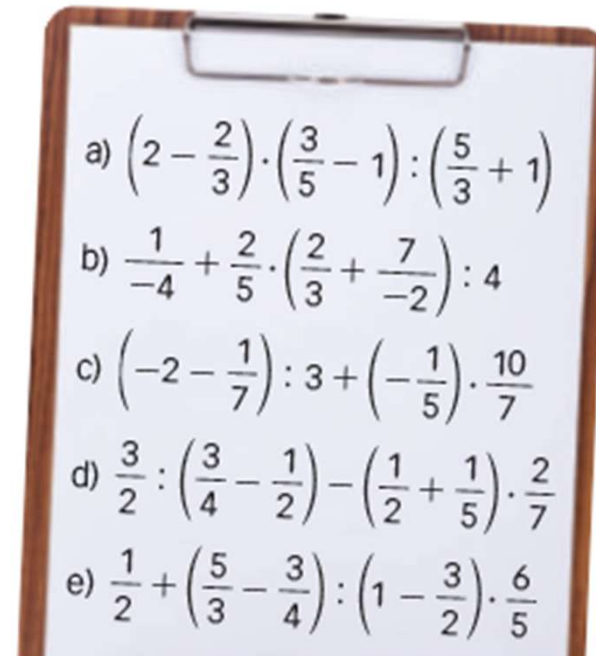 a) (2 − 2/3) · (3/5 − 1) : (5/3 + 1)
b) 1/−4 + 2/5 · (2/3 + 7/−2) : 4
c) (−2 − 1/7) : 3 + (−1/5) · 10/7
d) 3/2 : (3/4 − 1/2) − (1/2 + 1/5) · 2/7
e) 1/2 + (5/3 − 3/4) : (1 − 3/2) · 6/5